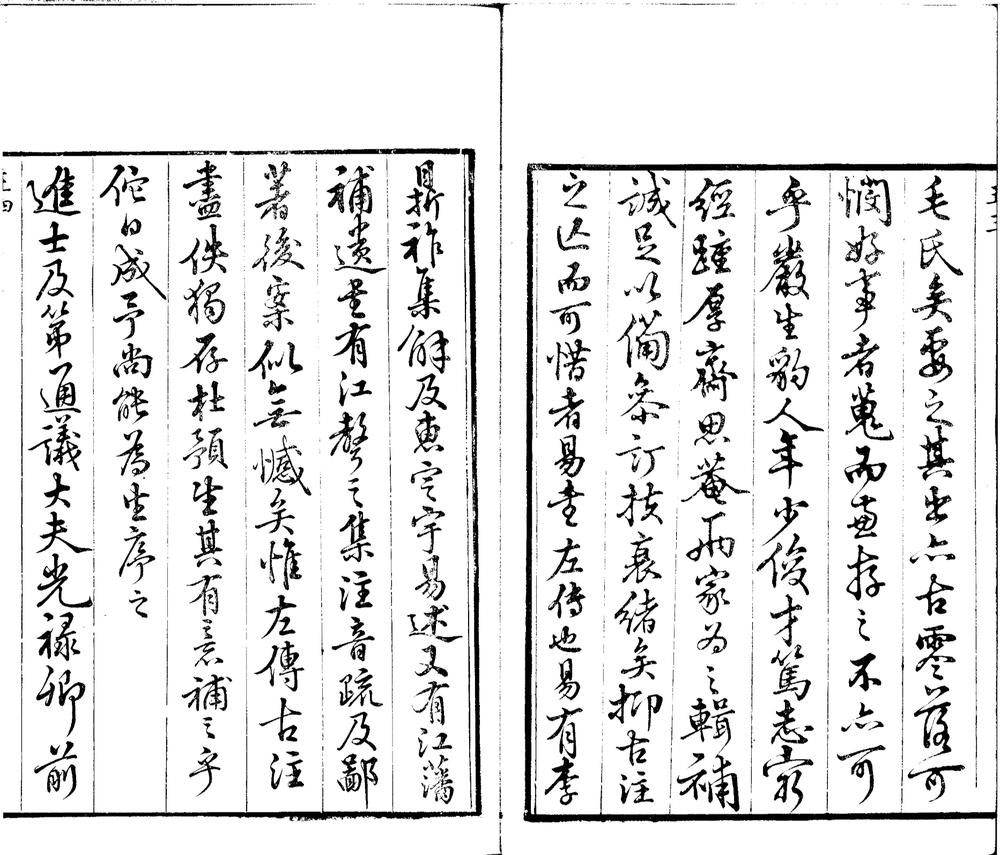 毛氏矣要之其書亦古零落可
憫好事者蒐而兼存之不亦可
乎嚴生豹人年少俊才篤志窮
經踵厚齋思菴兩家為之輯補
誠足以備參訂扶衰緒矣抑古注
之亡而可惜者易書左傳也易有李
鼎祚集解及惠定宇易述又有江藩
補遺書有江聲之集注音疏及鄙
著後案似無憾矣惟左傳古注
盡佚獨存杜預生其有意補之乎
佗日成予尚能為生序之
進士及第通議大夫光祿卿前